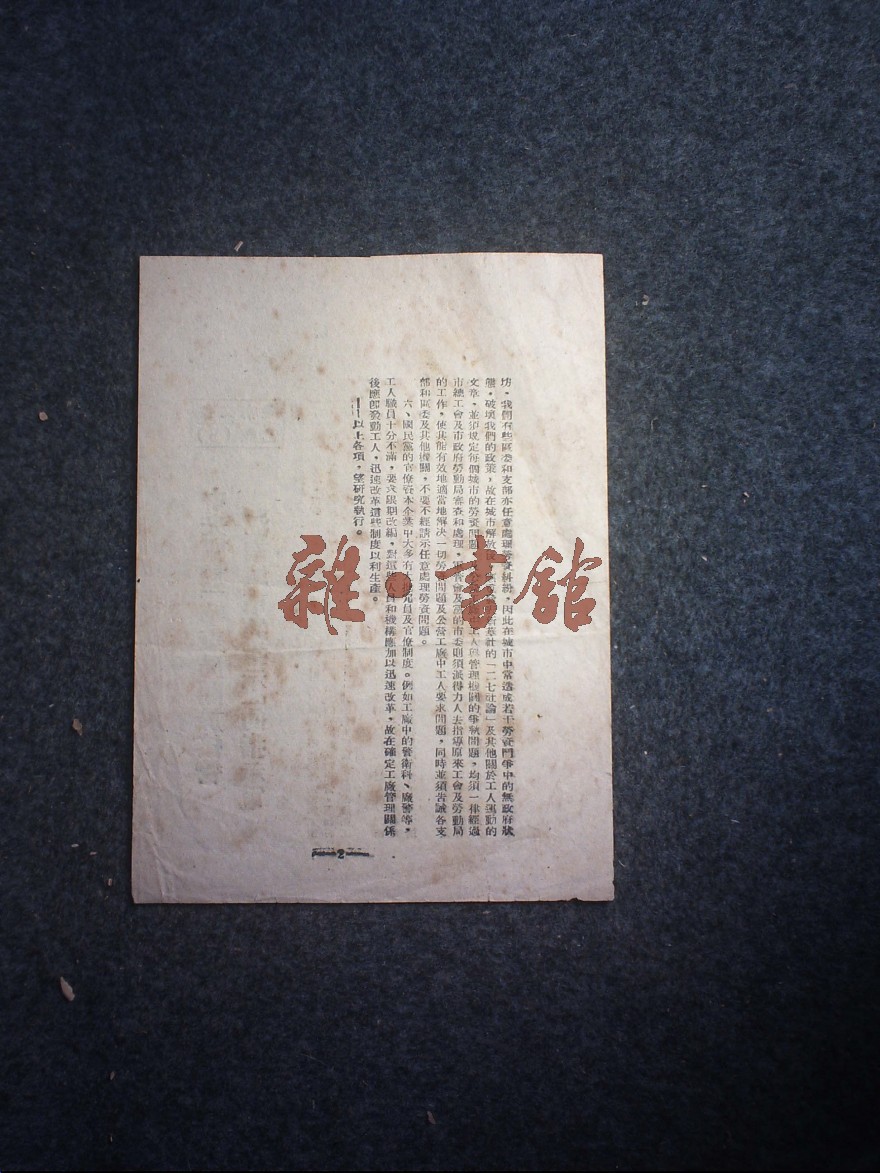 坊，我們有些區委和支部亦任意處理勞資糾紛，因此在城市中常造成若干勞資鬥爭中的無政府狀
態，破壞我們的政策，故在城市解放 新華社的「二七社論」及其他關於工人運動的
文章，並須規定每個城市的勞資問題 工人與管理機關的爭執問題，均須一律經過
市總工會及市政府勞動局審查和處理， 及黨的市委則須派得力人去指導原來工會及勞動局
的工作，使其能有效地適當地解決一切勞 問題及公營工廠中工人要求問題，同時並須告誡各支
部和區委及其他機關，不要不經請示任意處理勞資問題。
六、國民黨的官僚資本企業中大多有 冗員及官僚制度。例如工廠中的警衛科、廠警等，
工人職員十分不滿，要求限期改編，對這些人員和機構應加以迅速改革，故在確定工廠管理關係
後應即發動工人，迅速改革這些制度以利生產。
——以上各項，望研究執行。
2
雜·書館